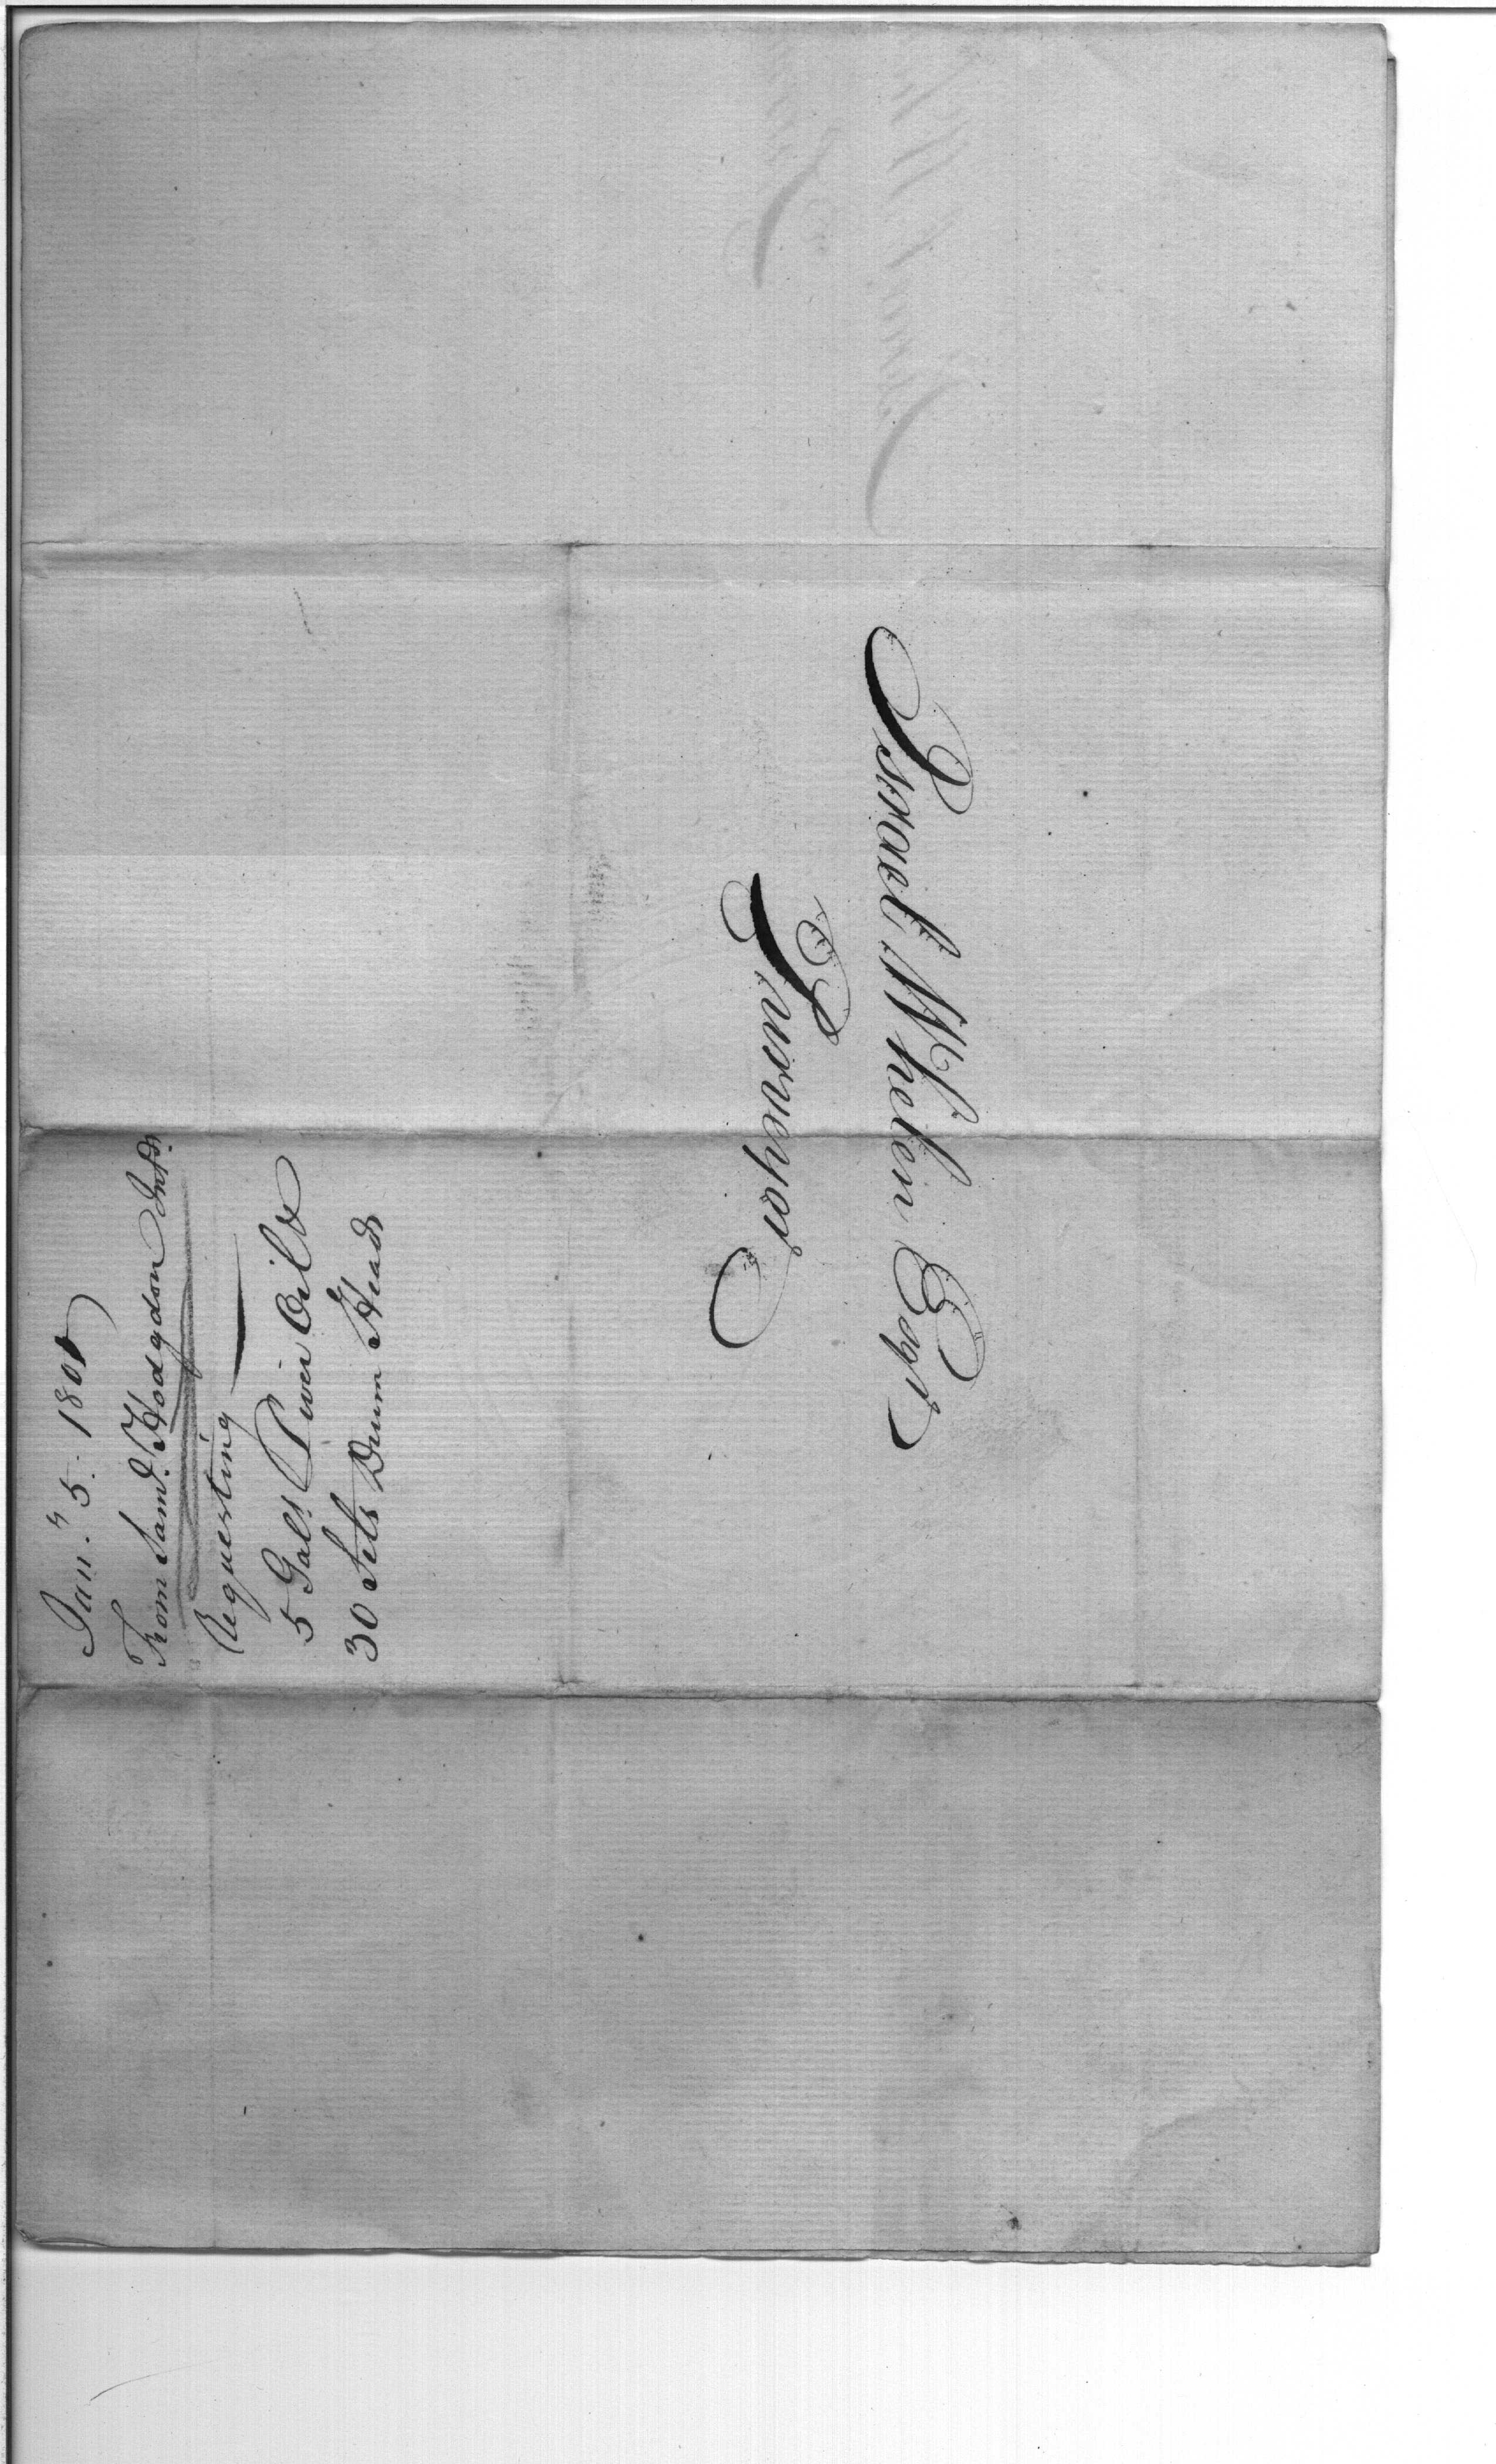 Israel Whelen Esqr
Purveyor
Jany. 5. 1801
From Saml. Hodgdon
Requesting
5 Galls. Oil &
30 Sets Drum Heads